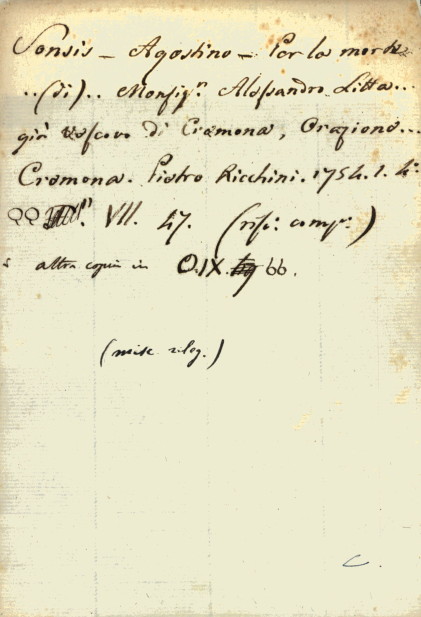 Sonsis - Agostino - Per la morte
..(di).. Monsigr. Alessandro Litta...
già vescovo di Cremona, Orazione...
Cremona. Pietro Ricchini. 1754. 1. 4°
QQ VII. 47. (
altra copia in O.IX. 66.
(misc. rileg.)
C.